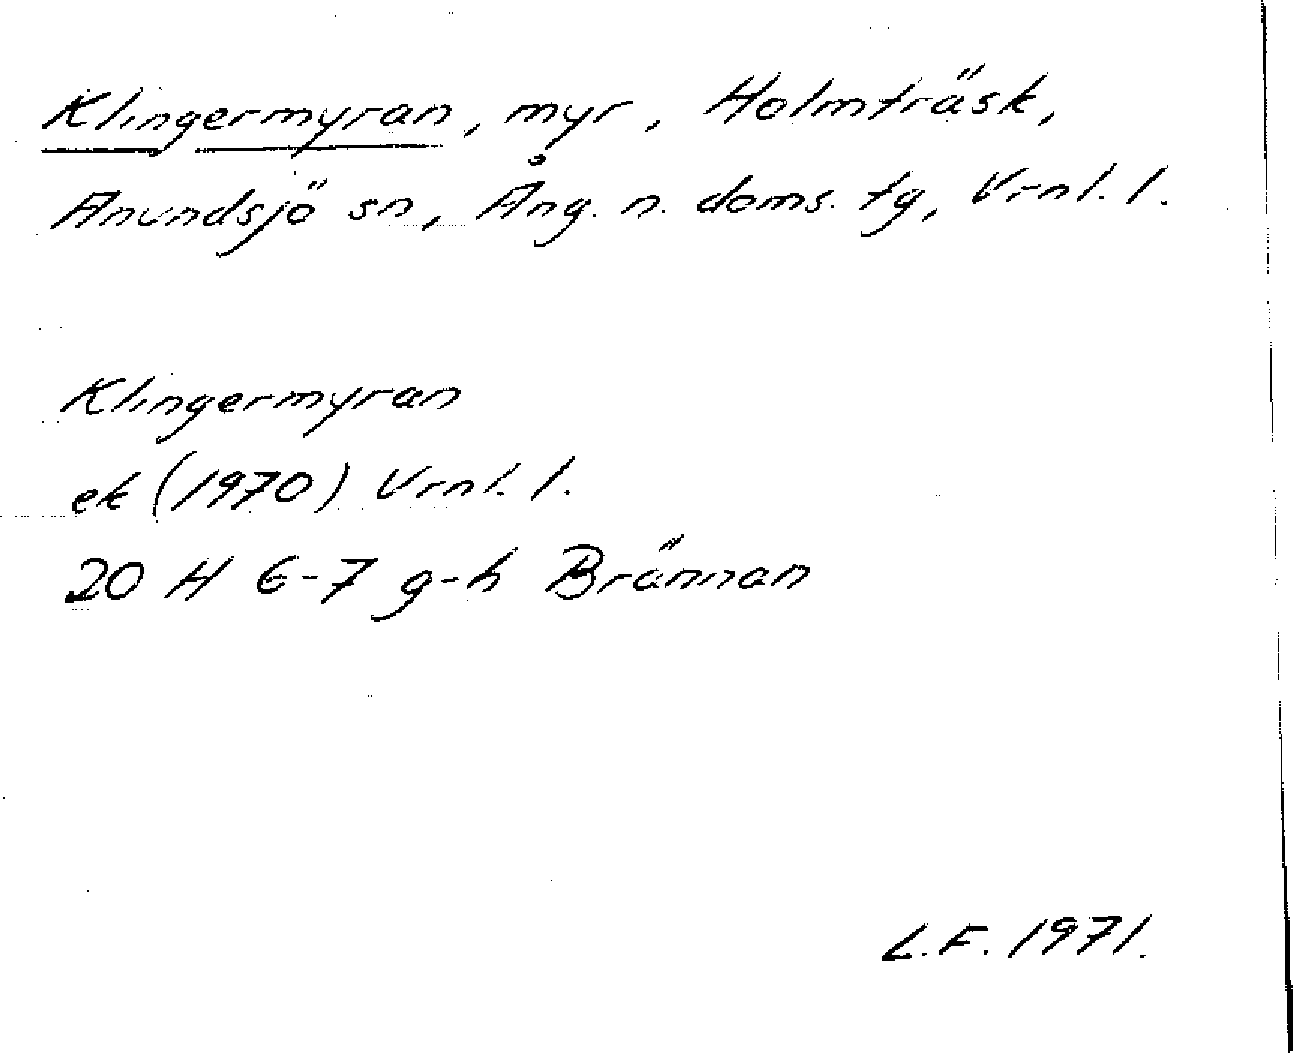 Klingermyran, myr, Holmträsk,
Anundsjö sn, Ång. n. doms. tg, Vrnl. l.
Klingermyran
ek (1970) Vrnl. l.
20 H 6-7 g-h Brännan
L.F. 1971.